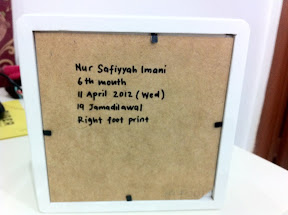 Nur Safiyyah Imani
6th month
11 April 2012 (Wed)
19 Jamadilawal
Right foot print